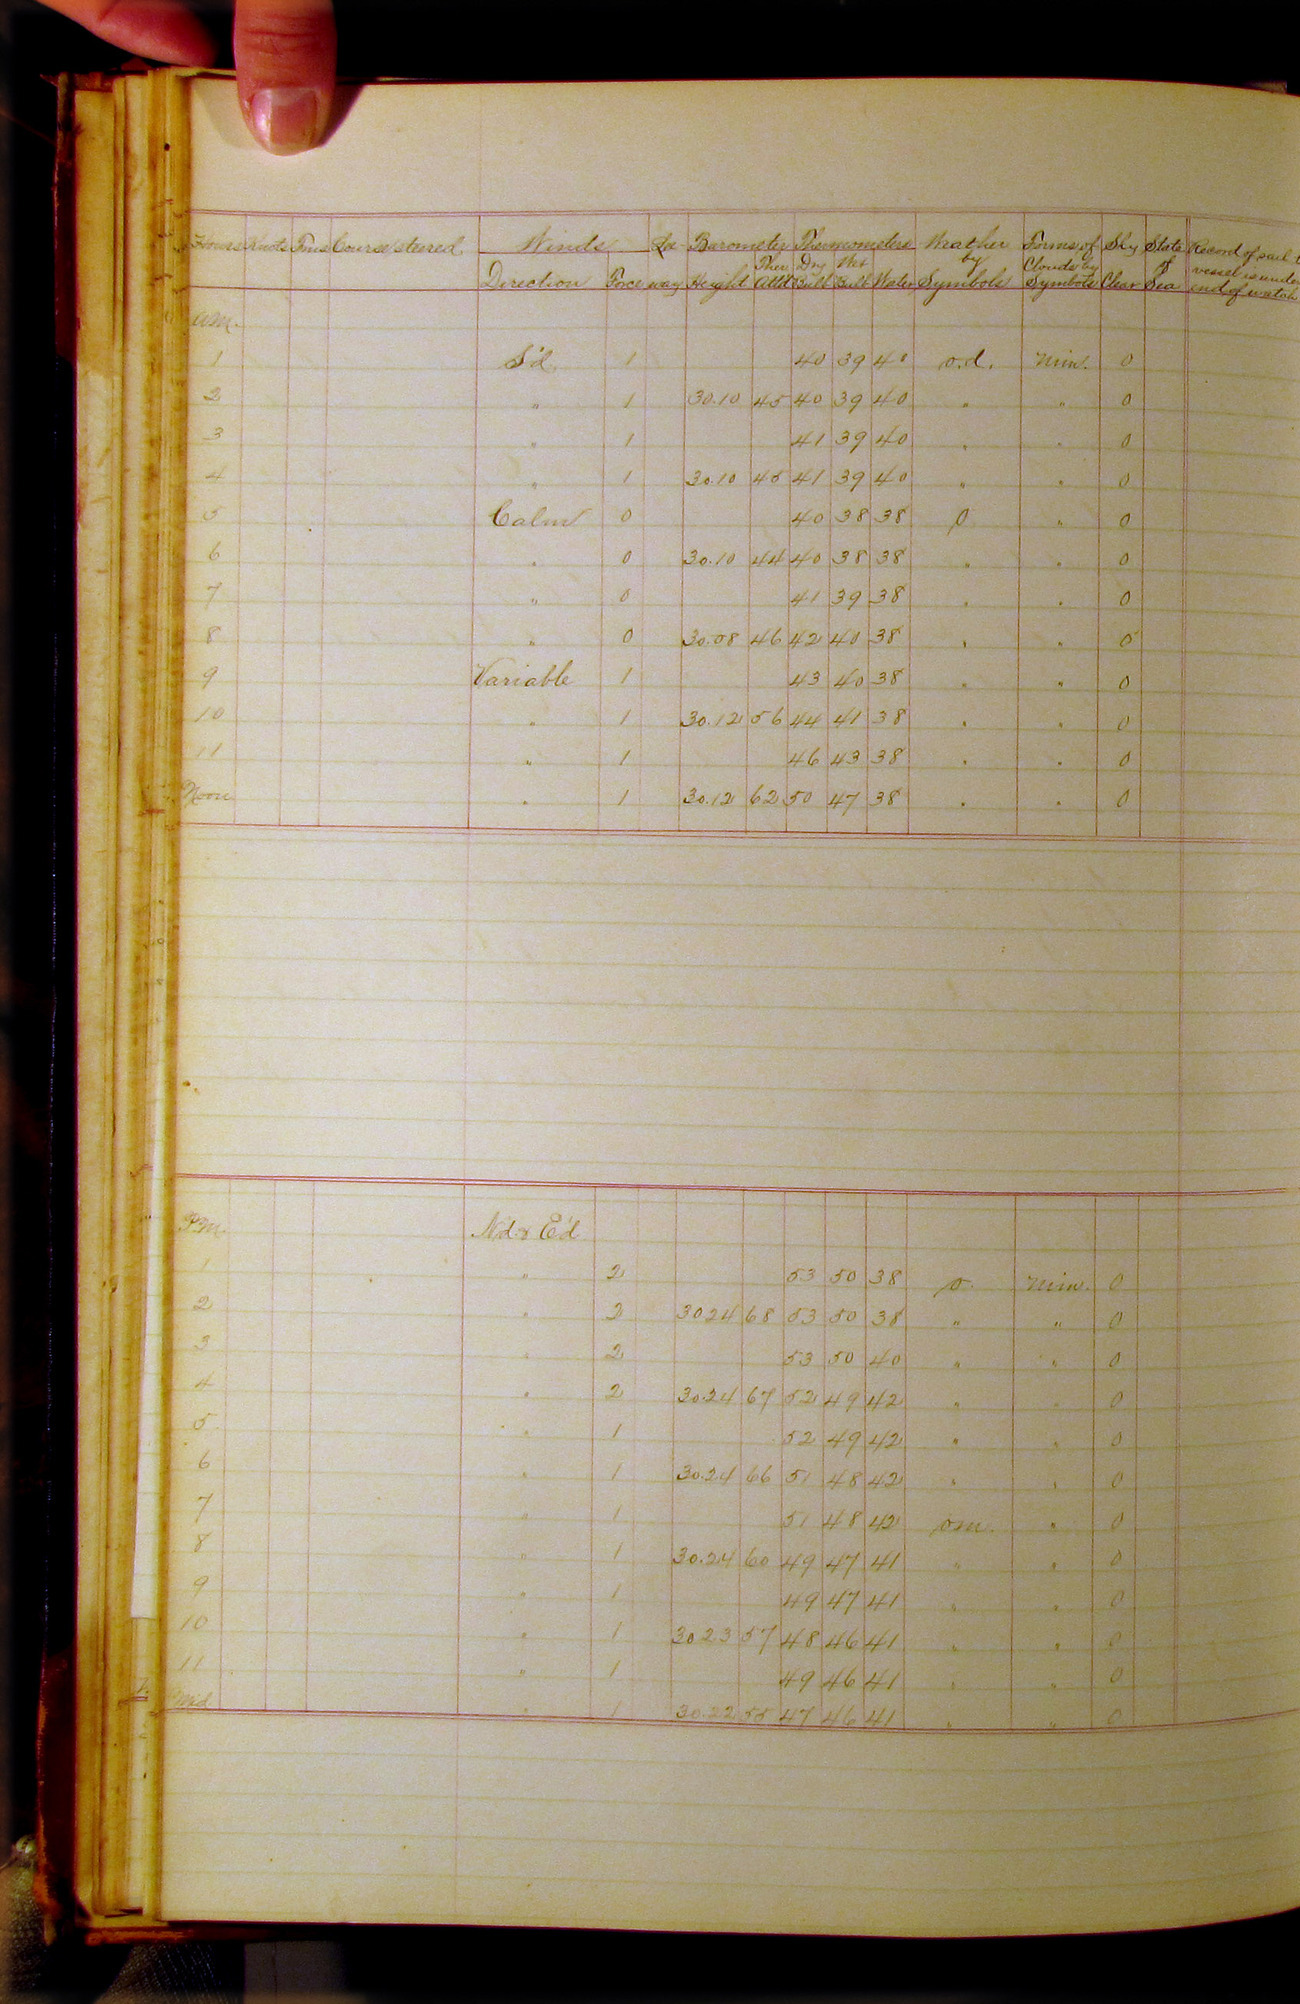 Hours Knots Tens Course steered Winds Lee Barometer Thermometers Weather Forms of Sky State Record of sail
Direction Force way Height Ther Att'd Dry Bulb Wet Bulb Water by Symbols Clouds by Symbols Clear of Sea vessel is under end of watch
A.M.
1 S'd 1 40 39 40 o.d. Nim. 0
2 " 1 30.10 45 40 39 40 " " 0
3 " 1 41 39 40 " " 0
4 " 1 30.10 45 41 39 40 " " 0
5 Calm 0 40 38 38 O " 0
6 " 0 30.10 44 40 38 38 " " 0
7 " 0 41 39 38 " " 0
8 " 0 30.08 46 42 40 38 " " 0
9 Variable 1 43 40 38 " " 0
10 " 1 30.12 56 44 41 38 " " 0
11 " 1 46 43 38 " " 0
Noon " 1 30.12 62 50 47 38 " " 0
P.M. N'd & E'd
1 " 2 53 50 38 o. Nim. 0
2 " 2 30 24 68 53 50 38 " " 0
3 " 2 53 50 40 " " 0
4 " 2 30.24 67 52 49 42 " " 0
5 " 1 52 49 42 " " 0
6 " 1 30.24 66 51 48 42 " " 0
7 " 1 51 48 42 om. " 0
8 " 1 30.24 60 49 47 41 " " 0
9 " 1 49 47 41 " " 0
10 " 1 30 23 57 48 46 41 " " 0
11 " 1 49 46 41 " " 0
Mid " 1 30.22 55 47 46 41 " " 0